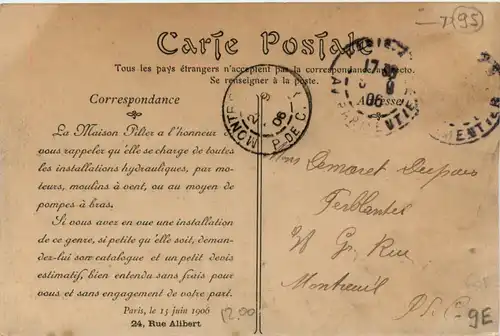 7195
Carte Postale
Tous les pays étrangers n'acceptent pas la correspondance au recto.
Se renseigner à la poste.
Correspondance
Adresse
La Maison Pilter a l'honneur de
vous rappeler qu'elle se charge de toutes
les installations hydrauliques, par mo-
teurs, moulins à vent, ou au moyen de
pompes à bras.
Si vous avez en vue une installation
de ce genre, si petite qu'elle soit, deman-
dez-lui son catalogue et un petit devis
estimatif, bien entendu sans frais pour
vous et sans engagement de votre part.
Paris, le 15 juin 1906
24, Rue Alibert
P. DE C.
06
17
06
Mons
Ferblantier
Gde Rue
Montreuil
P. d. C.
1200
9E